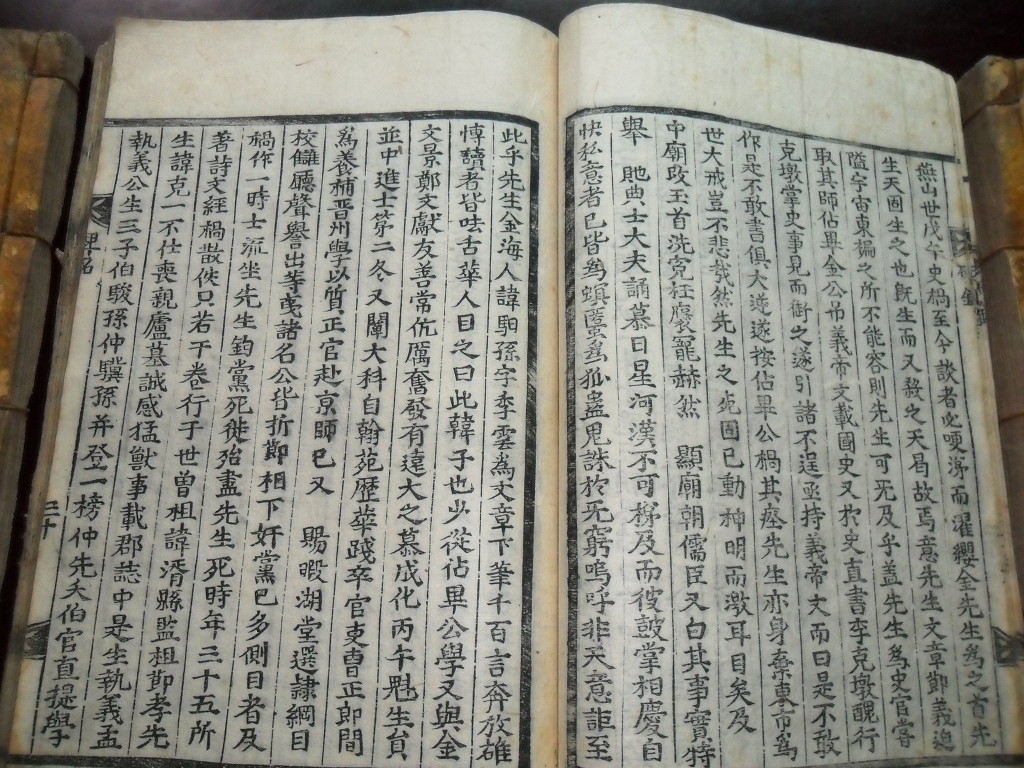 燕山世戊午史禍至今談者必哽涕而濯纓金先生爲之首先
生天固生之也旣生而又殺之天曷故焉意先生文章節義迫
隘宇宙東褊之所不能容則先生可死及乎盖先生爲史官嘗
取其師佔畢金公吊義帝文載國史又於史直書李克墩醜行
克墩掌史事見而銜之遂引諸不逞丞持義帝文而曰是不敢
作是不敢書俱大逆遂按佔畢公禍其瘞先生亦身棄東市爲
世大戒豈不悲哉然先生之死固已動神明而激耳目矣及
中廟改玉首洗寃枉褒寵赫然 顯廟朝儒臣又白其事實特
擧 貤典士大夫誦慕日星河漢不可梯及而彼鼓掌相慶自
快私意者已皆爲螟蟊爲狐蠱鬼誅於死窮嗚呼非天意詎至
此乎先生金海人諱馹孫字季雲爲文章下筆千百言奔放雄
悍讀者皆呿舌華人目之曰此韓子也少從佔畢公學又與金
文景鄭文獻友善常伉厲奮發有遠大之慕成化丙午魁生員
並中進士第二冬又闡大科自翰苑歷華踐卒官吏曹正郎間
爲養補晋州學以質正官赴京師已又 賜暇湖堂選隷綱目
校讎廳聲譽出等夷諸名公皆折節相下奸黨已多側目者及
禍作一時士流坐先生鉤黨死徙殆盡先生死時年三十五所
著詩文經禍散佚只若干卷行于世曾祖諱湑縣監祖節孝先
生諱克一不仕喪親廬墓誠感猛獸事載郡誌中是生執義孟
執義公生三子伯駿孫仲驥孫并登一榜仲先夭伯官直提學
碑銘
三十